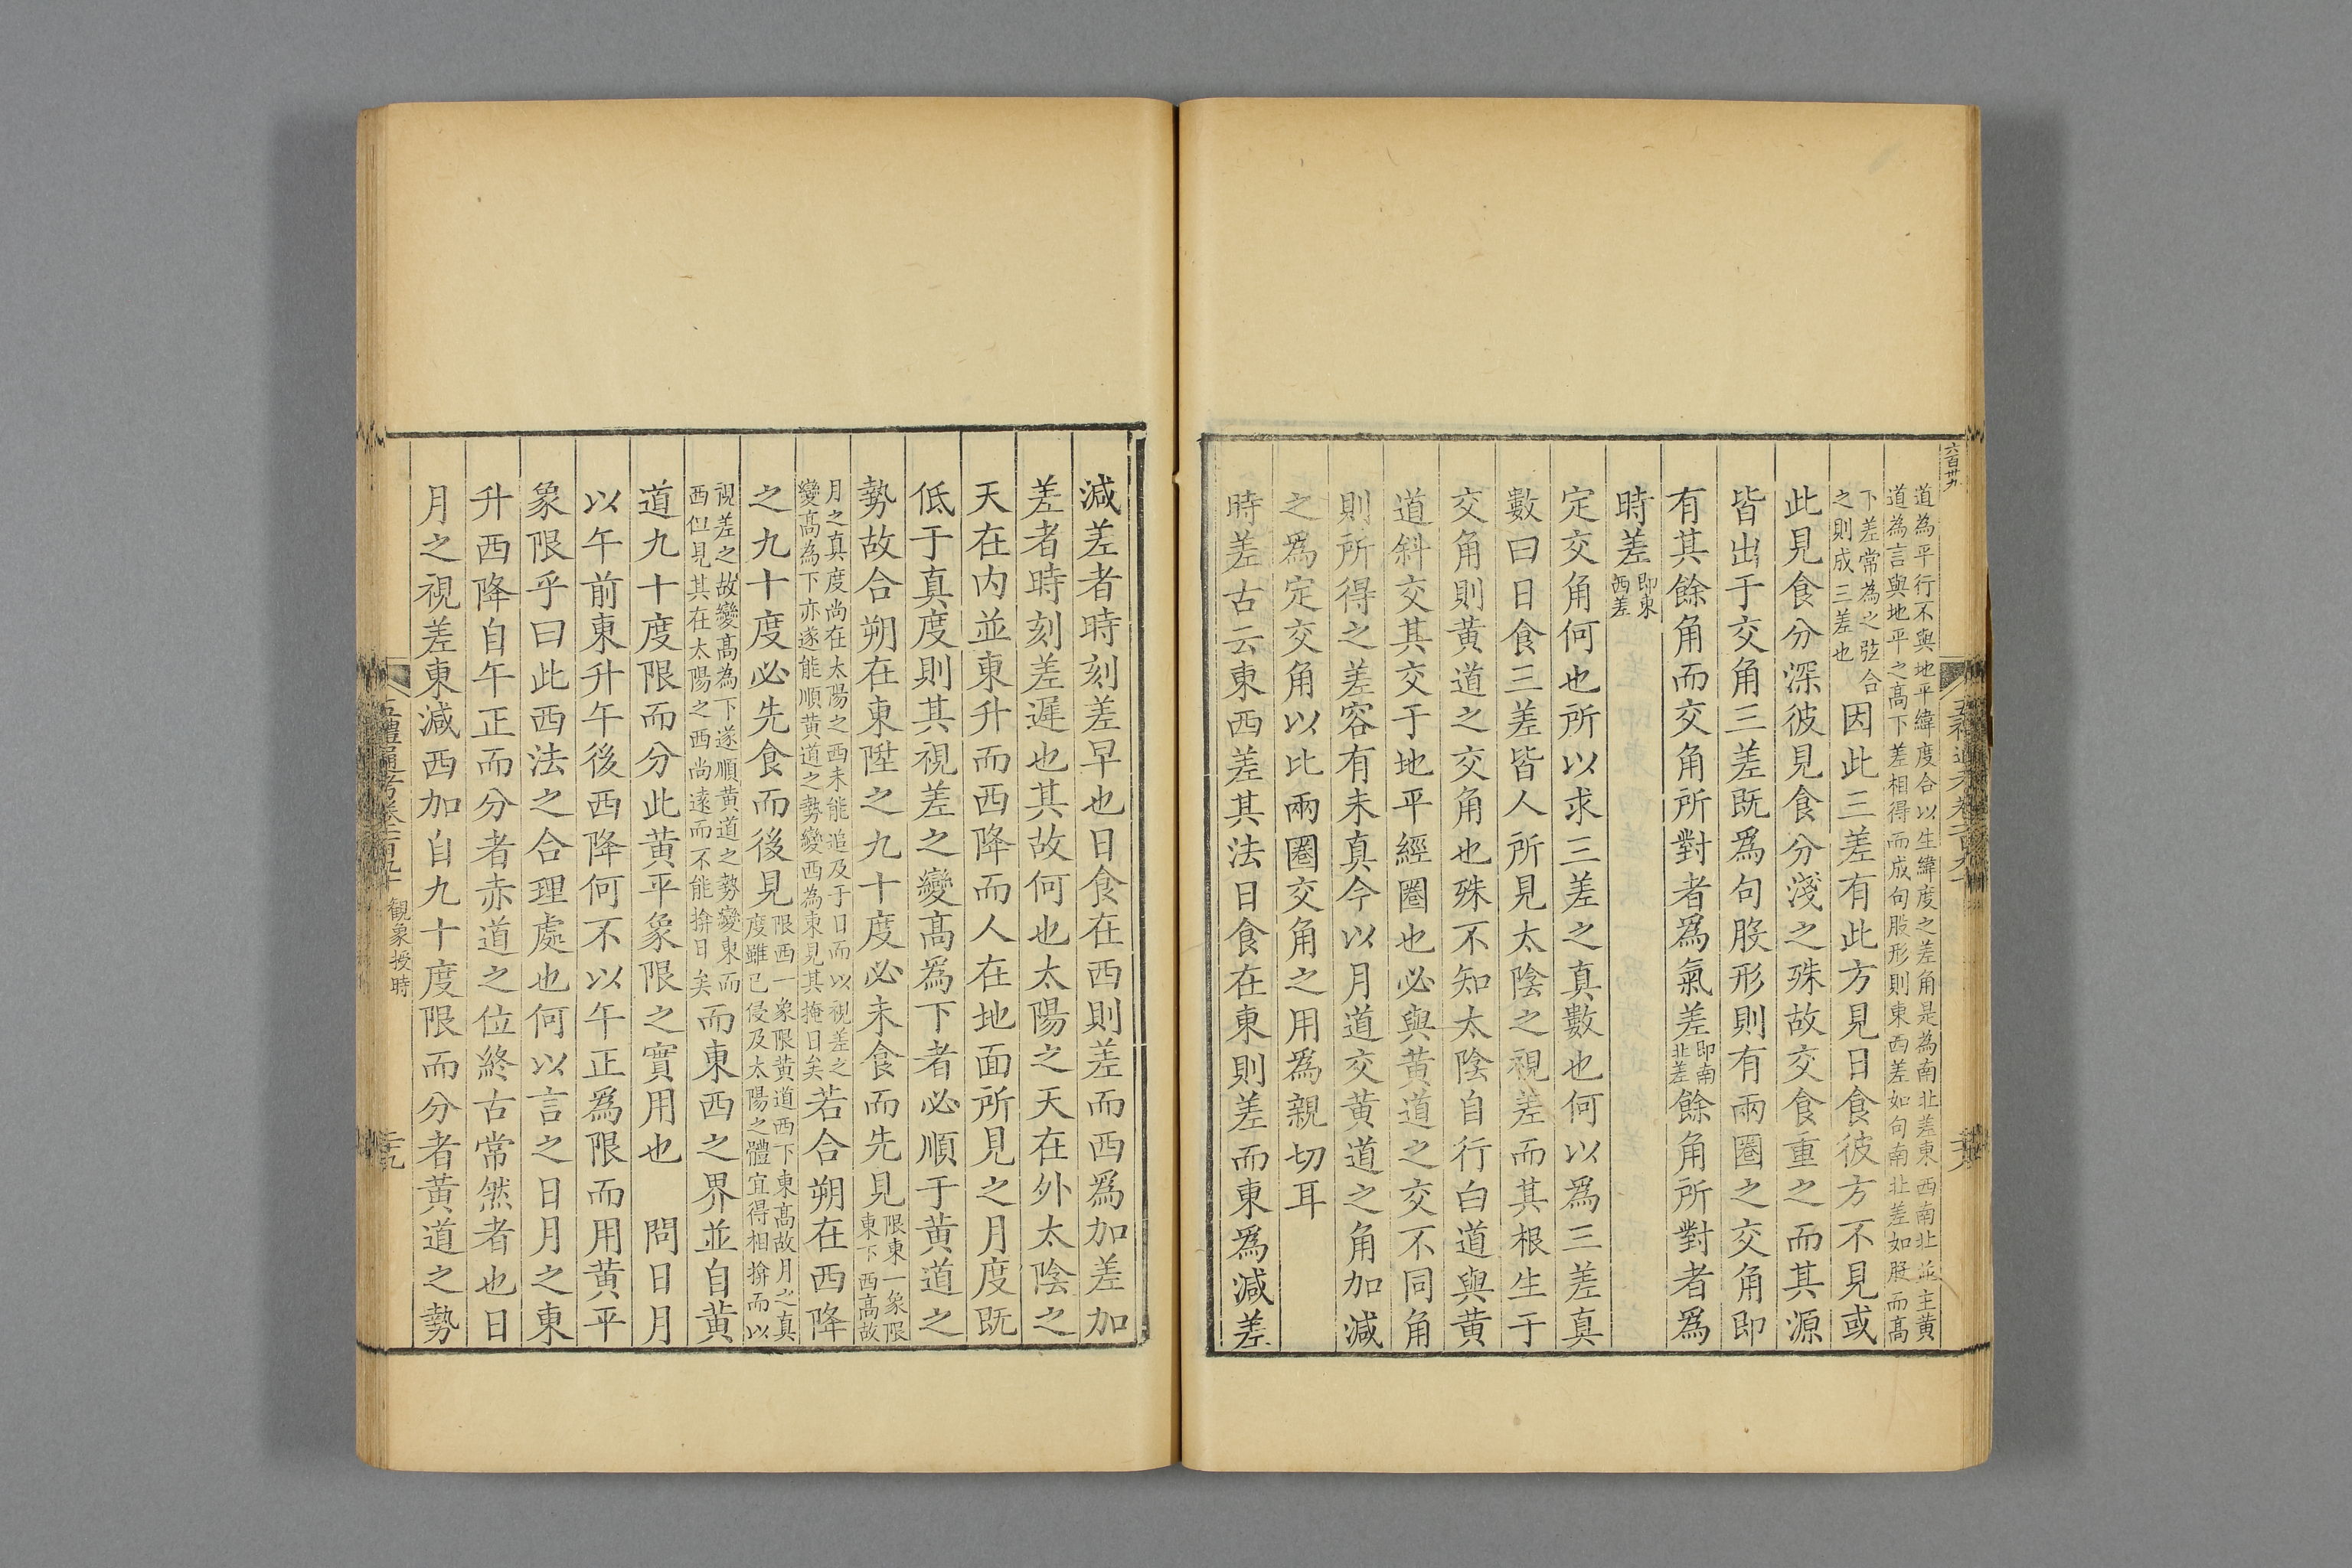 六百卅九
道為平行不與地平緯度合以生緯度之差角是為南北差東西南北並主黃
道為言與地平之高下差相得而成句股形則東西差如句南北差如股而高
下差常為之弦合
之則成三差也
因此三差有此方見日食彼方不見或
此見食分深彼見食分淺之殊故交食重之而其源
皆出于交角三差既爲句股形則有兩圈之交角即
有其餘角而交角所對者爲氣差即南北差餘角所對者爲
時差即東西差
定交角何也所以求三差之真數也何以爲三差真
數曰日食三差皆人所見太陰之視差而其根生于
交角則黃道之交角也殊不知太陰自行白道與黃
道斜交其交于地平經圈也必與黃道之交不同角
則所得之差容有未真今以月道交黃道之角加減
之爲定交角以比兩圈交角之用爲親切耳
時差古云東西差其法日食在東則差而東爲減差
減差者時刻差早也日食在西則差而西爲加差加
差者時刻差遲也其故何也太陽之天在外太陰之
天在内並東升而西降而人在地面所見之月度既
低于真度則其視差之變高爲下者必順于黃道之
勢故合朔在東陞之九十度必未食而先見限東一象限東下西高故
月之真度尚在太陽之西未能追及于日而以視差之
變高為下亦遂能順黃道之勢變西為東見其掩日矣
若合朔在西降
之九十度必先食而後見限西一象限黃道西下東高故月之真度雖已侵及太陽之體宜得相揜而以
視差之故變高為下遂順黃道之勢變東而
西但見其在太陽之西尚遠而不能揜日矣
而東西之界並自黃
道九十度限而分此黃平象限之實用也　問日月
以午前東升午後西降何不以午正爲限而用黃平
象限乎曰此西法之合理處也何以言之日月之東
升西降自午正而分者赤道之位終古常然者也日
月之視差東減西加自九十度限而分者黃道之勢
五禮通考卷一百九十
觀象授時
二十九